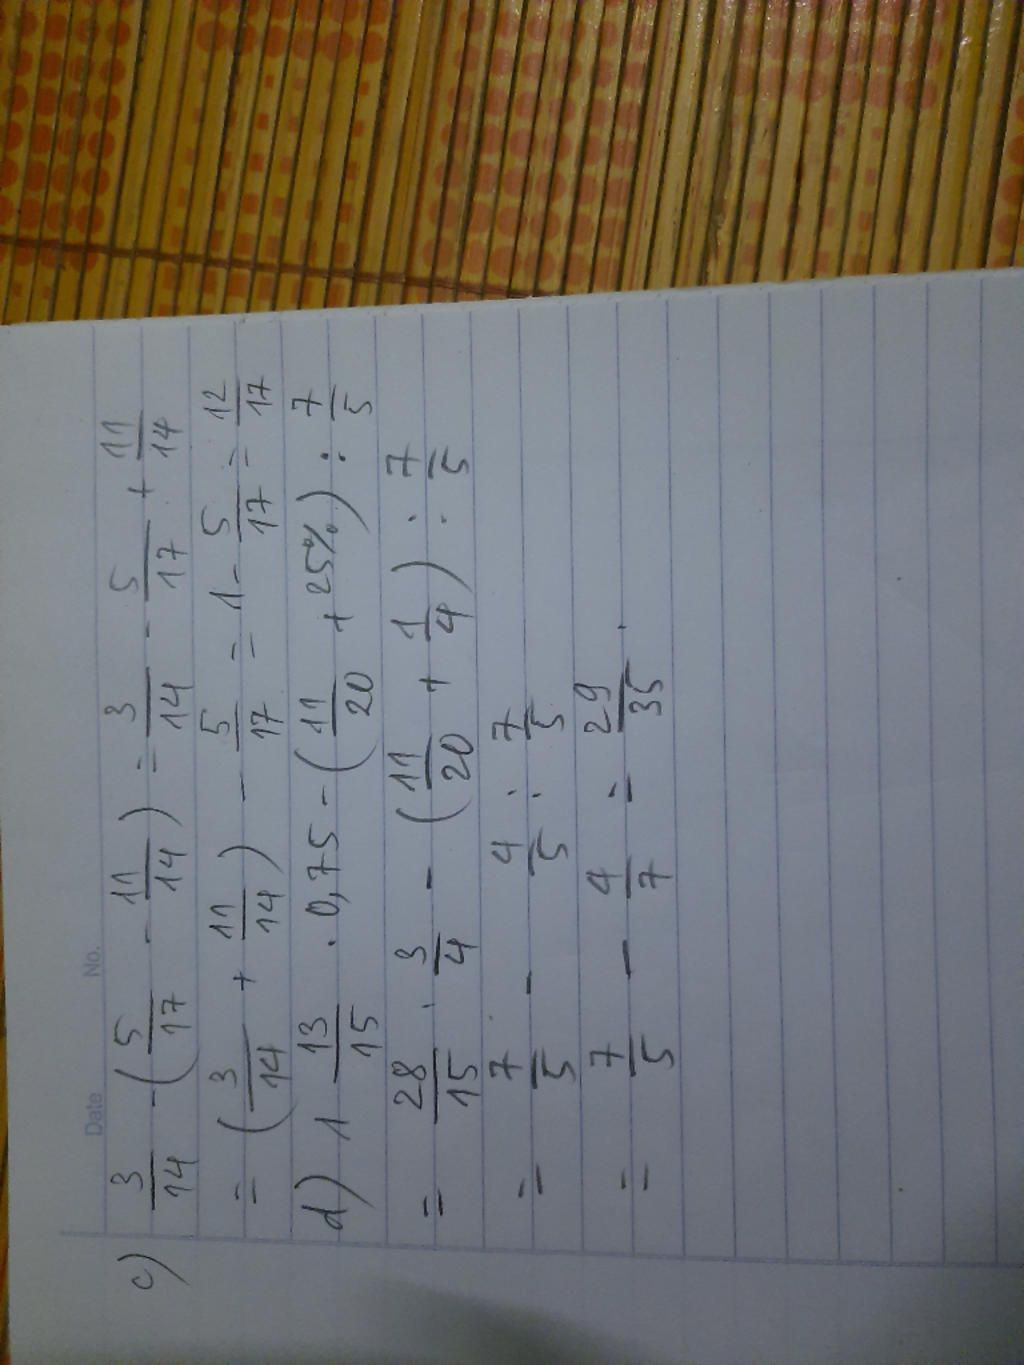 Date No.
c) 3/14 - (5/17 - 11/14) = 3/14 - 5/17 + 11/14
= (3/14 + 11/14) - 5/17 = 1 - 5/17 = 12/17
d) 1 13/15 . 0,75 - (11/20 + 25%) : 7/5
= 28/15 . 3/4 - (11/20 + 1/4) : 7/5
= 7/5 - 4/5 : 7/5
= 7/5 - 4/7 = 29/35 .